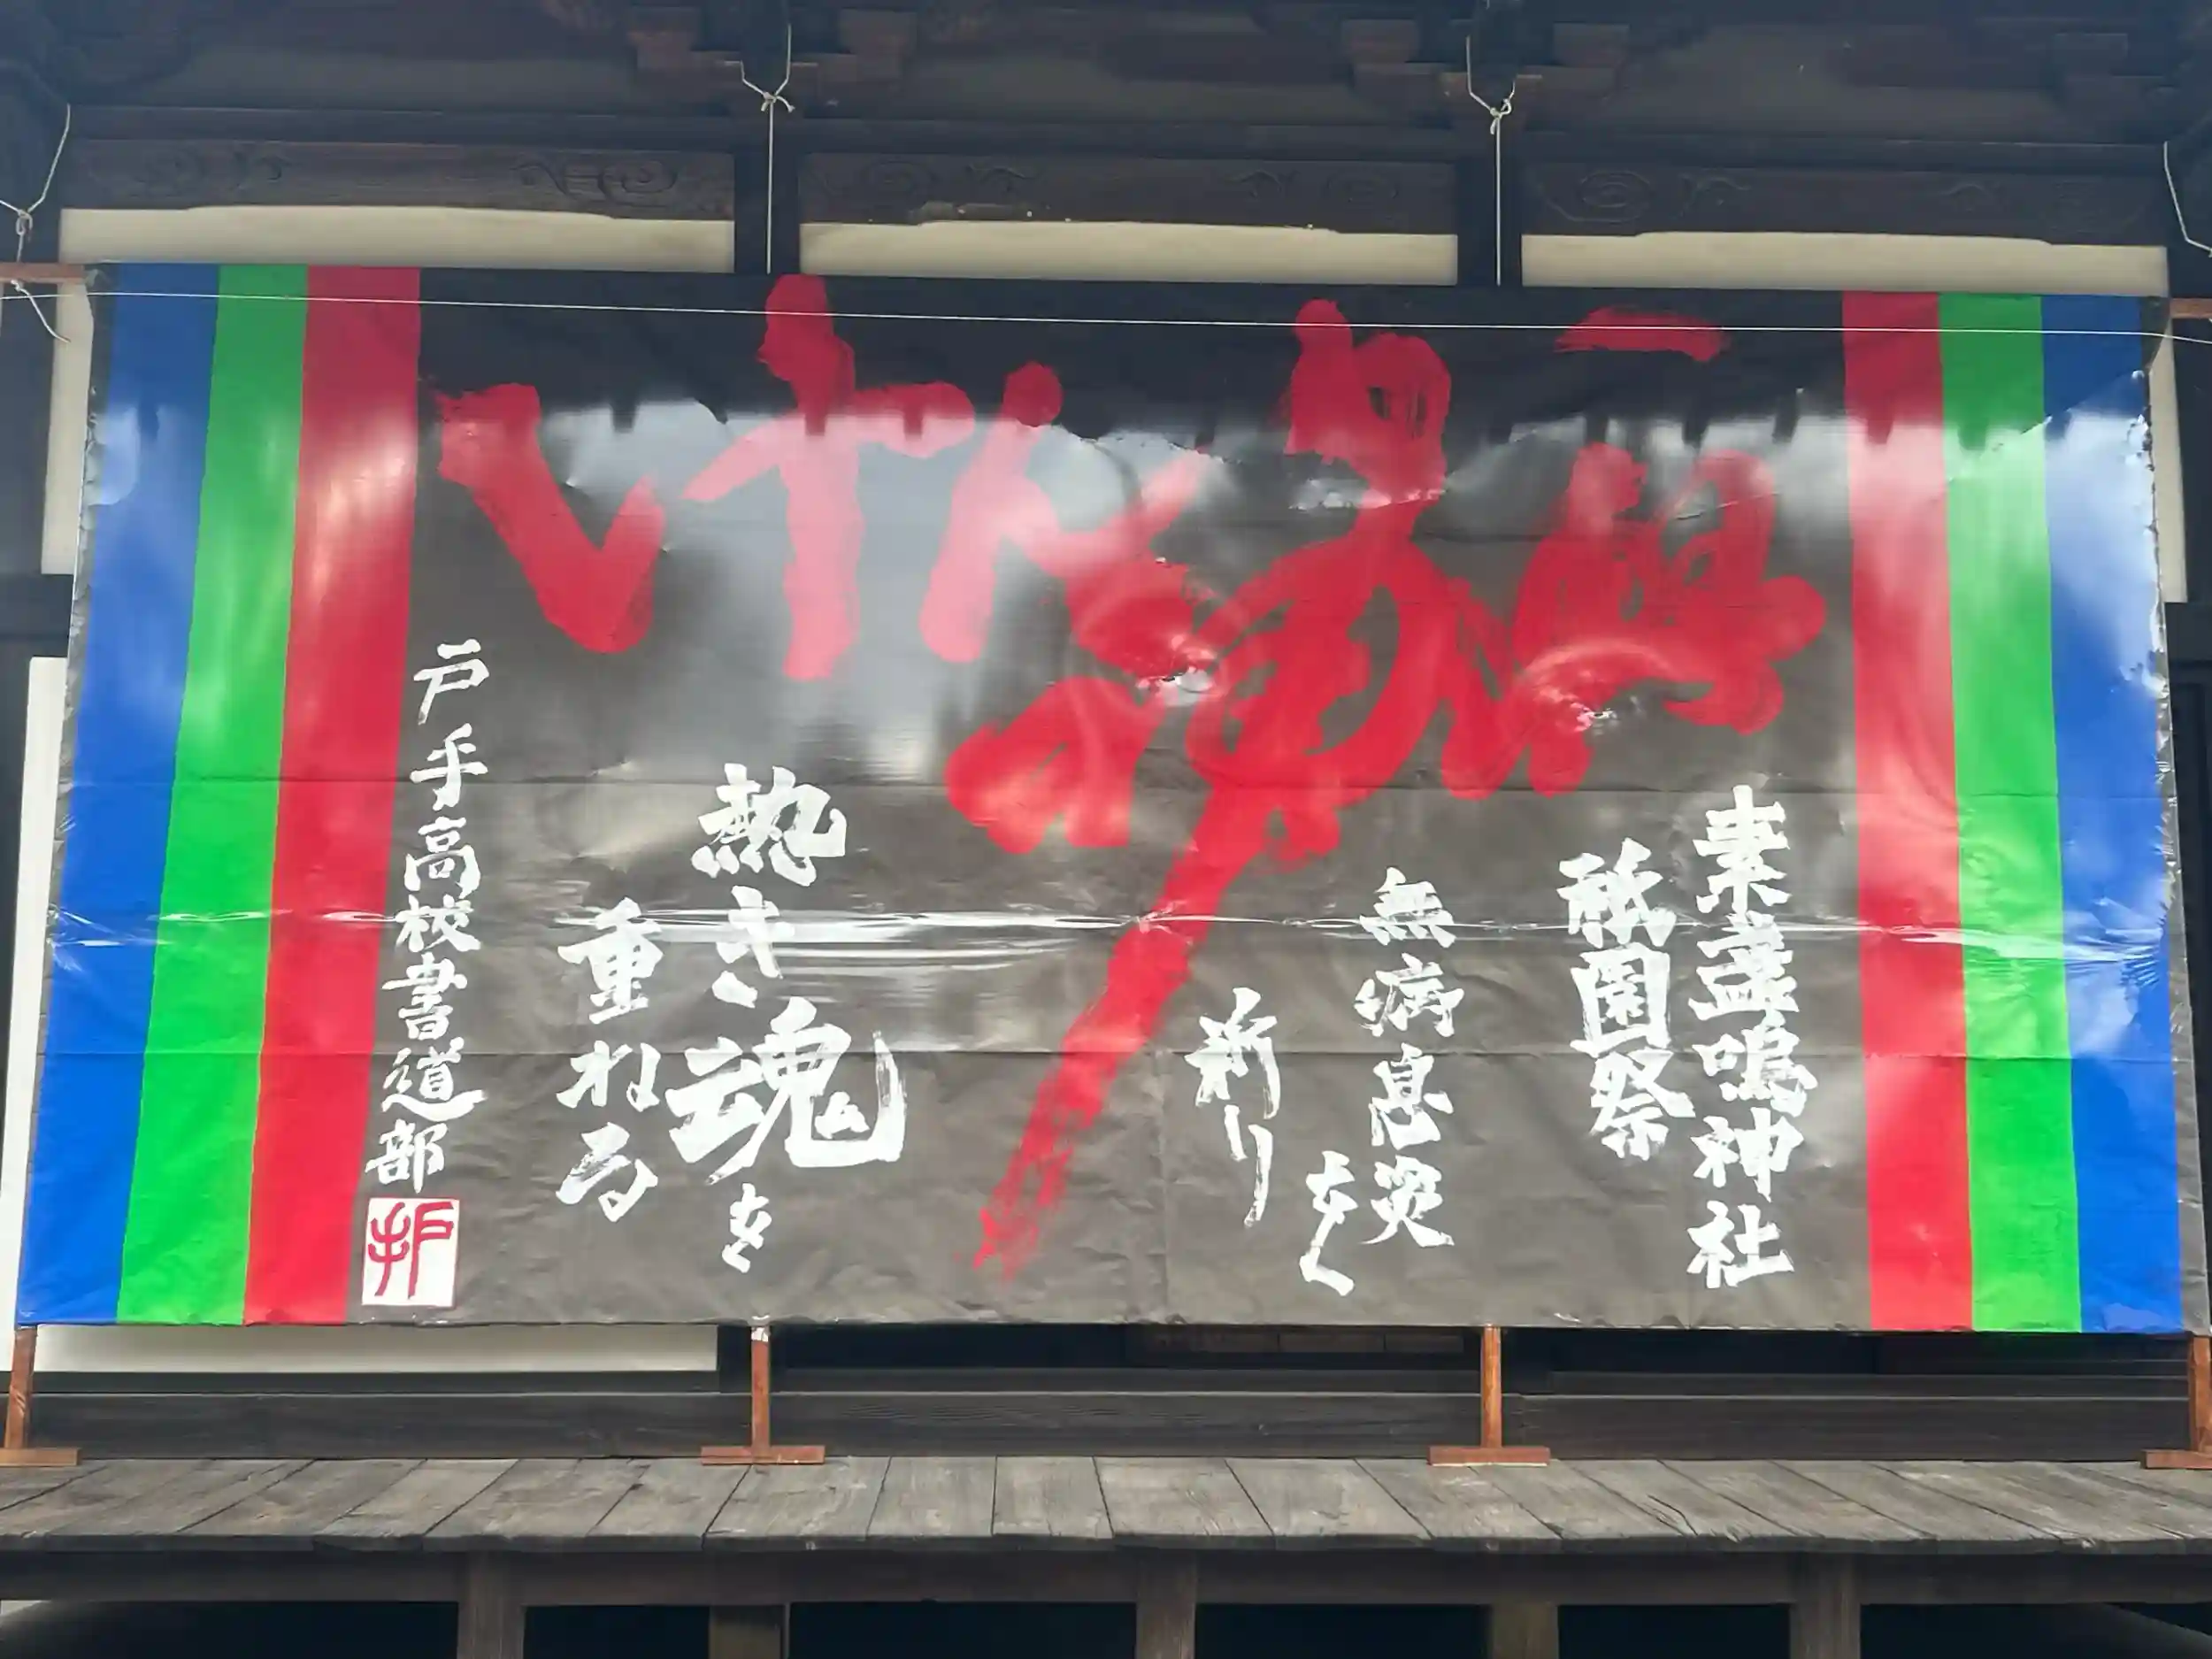 素盞嗚神社
祇園祭
無病息災を
祈り
熱き魂を
重ねる
戸手高校書道部
戸手